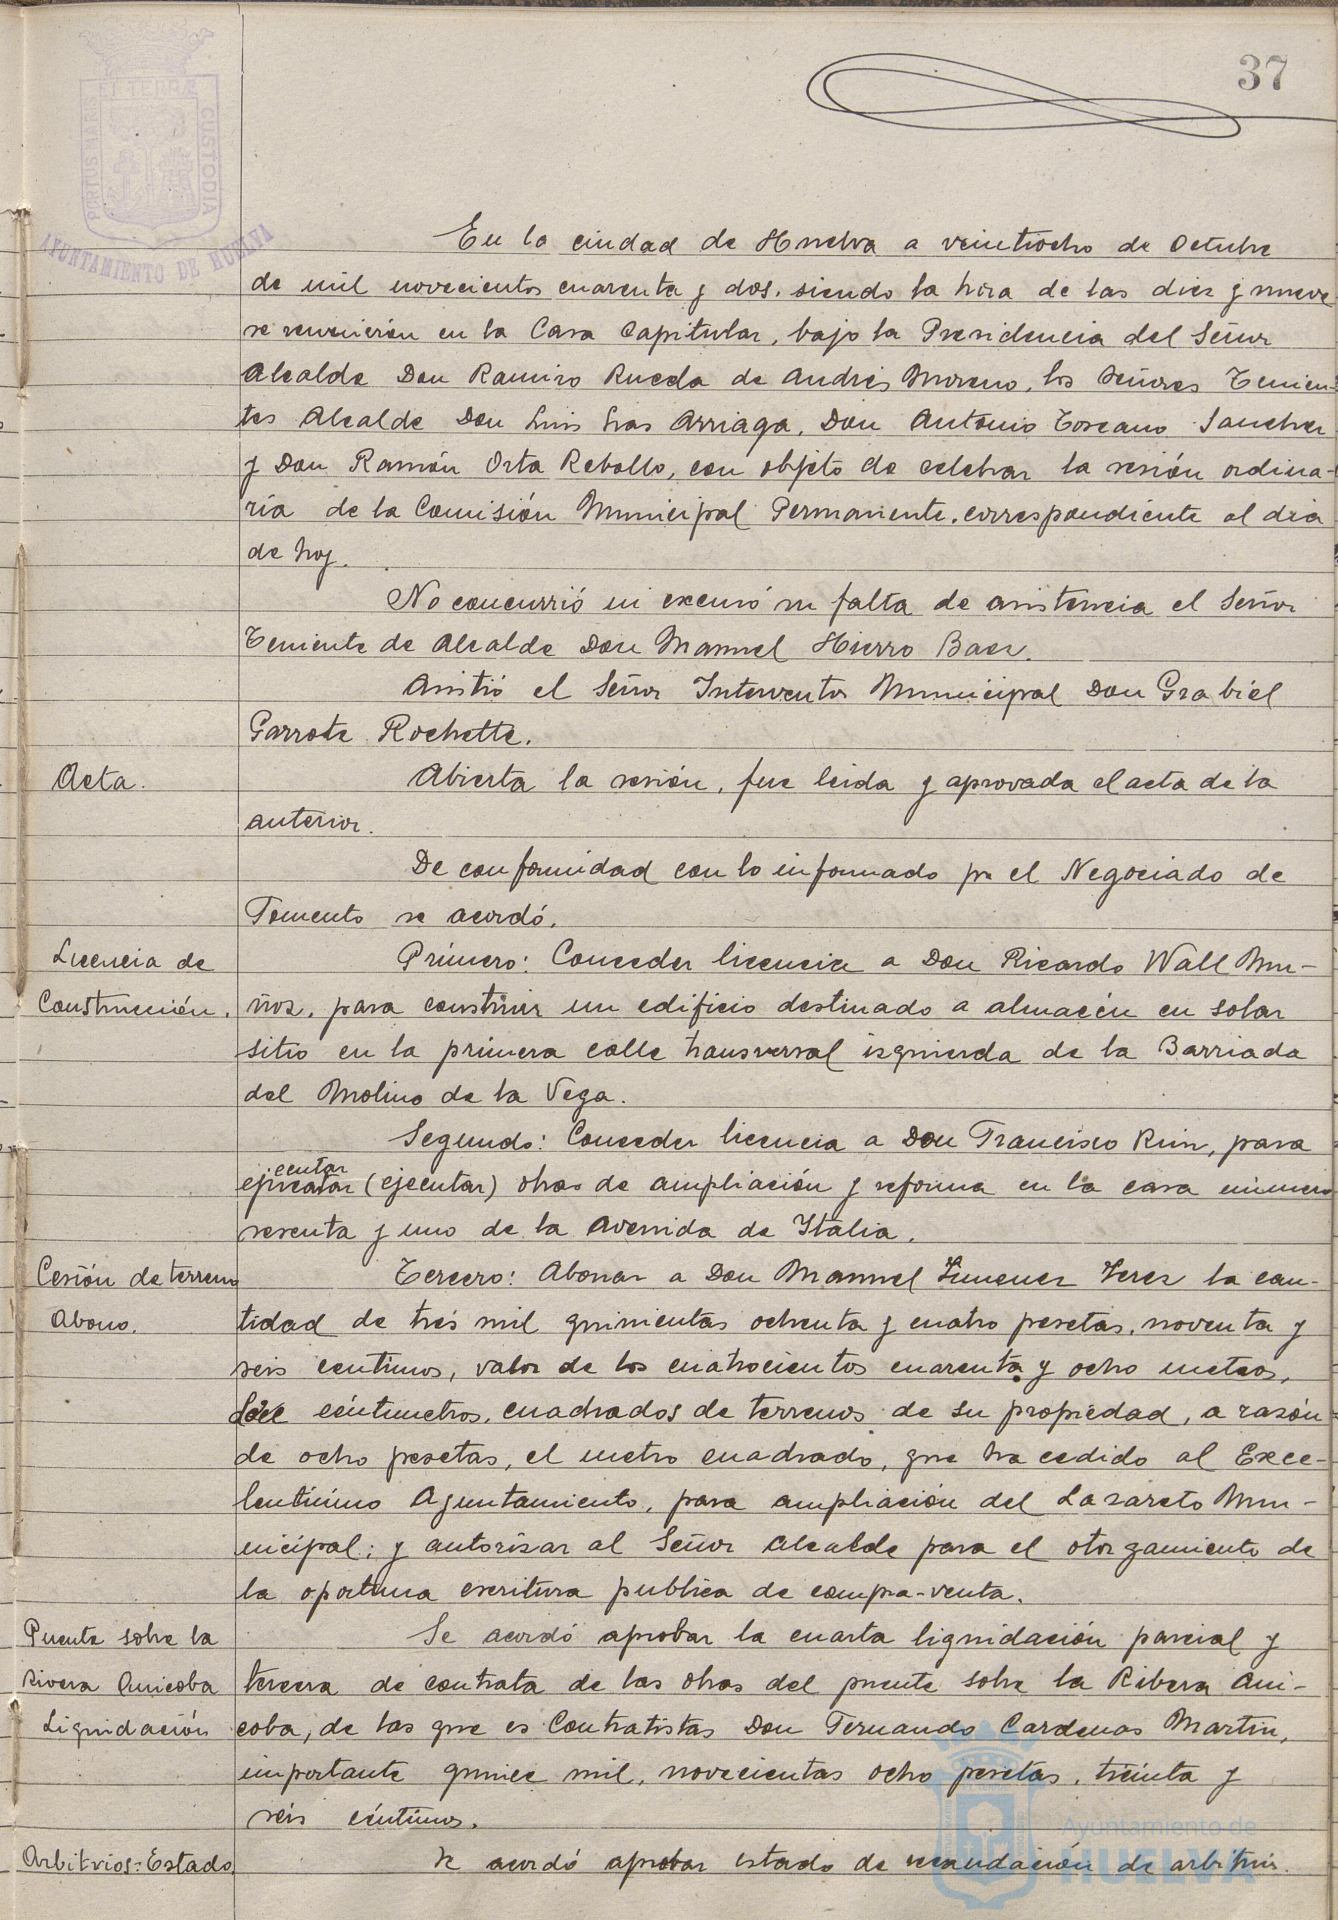 37
PORTUS MARIS ET TERRÆ CUSTODIA
AYUNTAMIENTO DE HUELVA
En la ciudad de Huelva a veintiocho de Octubre
de mil novecientos cuarenta y dos, siendo la hora de las diez y nueve
se reunieron en la Casa Capitular, bajo la Presidencia del Señor
Alcalde Don Ramiro Rueda de Andrés Moreno, los Señores Tenien-
tes Alcalde Don Luis Lras Arriaga, Don Antonio Toscano Sanchez
y Don Ramón Orta Rebollo, con objeto de celebrar la sesión ordina-
ria de la Comisión Municipal Permanente, correspondiente al dia
de hoy.
No concurrió ni excusó su falta de asistencia el Señor
Teniente de Alcalde Don Manuel Hierro Baez.
Asistió el Señor Interventor Municipal Don Grabiel
Garrote Rochette.
Acta.
Abierta la sesión, fue leida y aprovada el acta de la
anterior.
De conformidad con lo informado por el Negociado de
Fomento se acordó.
Licencia de
Construcción.
Primero: Conceder licencia a Don Ricardo Wall Mu-
ñoz, para construir un edificio destinado a almacén en solar
sitio en la primera calle transversal izquierda de la Barriada
del Molino de la Vega.
Segundo: Conceder licencia a Don Francisco Ruiz, para
ecutar
(ejecutar) obras de ampliación y reforma en la casa número
sesenta y uno de la Avenida de Italia.
Cesión de terreno
Abono.
Tercero: Abonar a Don Manuel Jimenez Jerez la can-
tidad de tres mil quinientas ochenta y cuatro pesetas, noventa y
seis centimos, valor de los cuatrocientos cuarenta y ocho metros,
doce céntimetros, cuadrados de terrenos de su propiedad, a razón
de ocho pesetas, el metro cuadrado, que ha cedido al Exce-
lentísimo Ayuntamiento, para ampliación del Lazareto Mu-
nicipal; y autorizar al Señor Alcalde para el otorgamiento de
la oportuna escritura publica de compra-venta.
Puente sobre la
Rivera Anicoba
Liquidación
Se acordó aprobar la cuarta liquidación parcial y
tercera de contrata de las obras del puente sobre la Ribera Ani-
coba, de las que es Contratistas Don Fernando Cardenas Martin,
importante quince mil, novecientas ocho pesetas, treinta y
seis céntimos.
Arbitrios: Estado.
Se acordó aprobar estado de recaudación de arbitrios
Ayuntamiento de
HUELVA